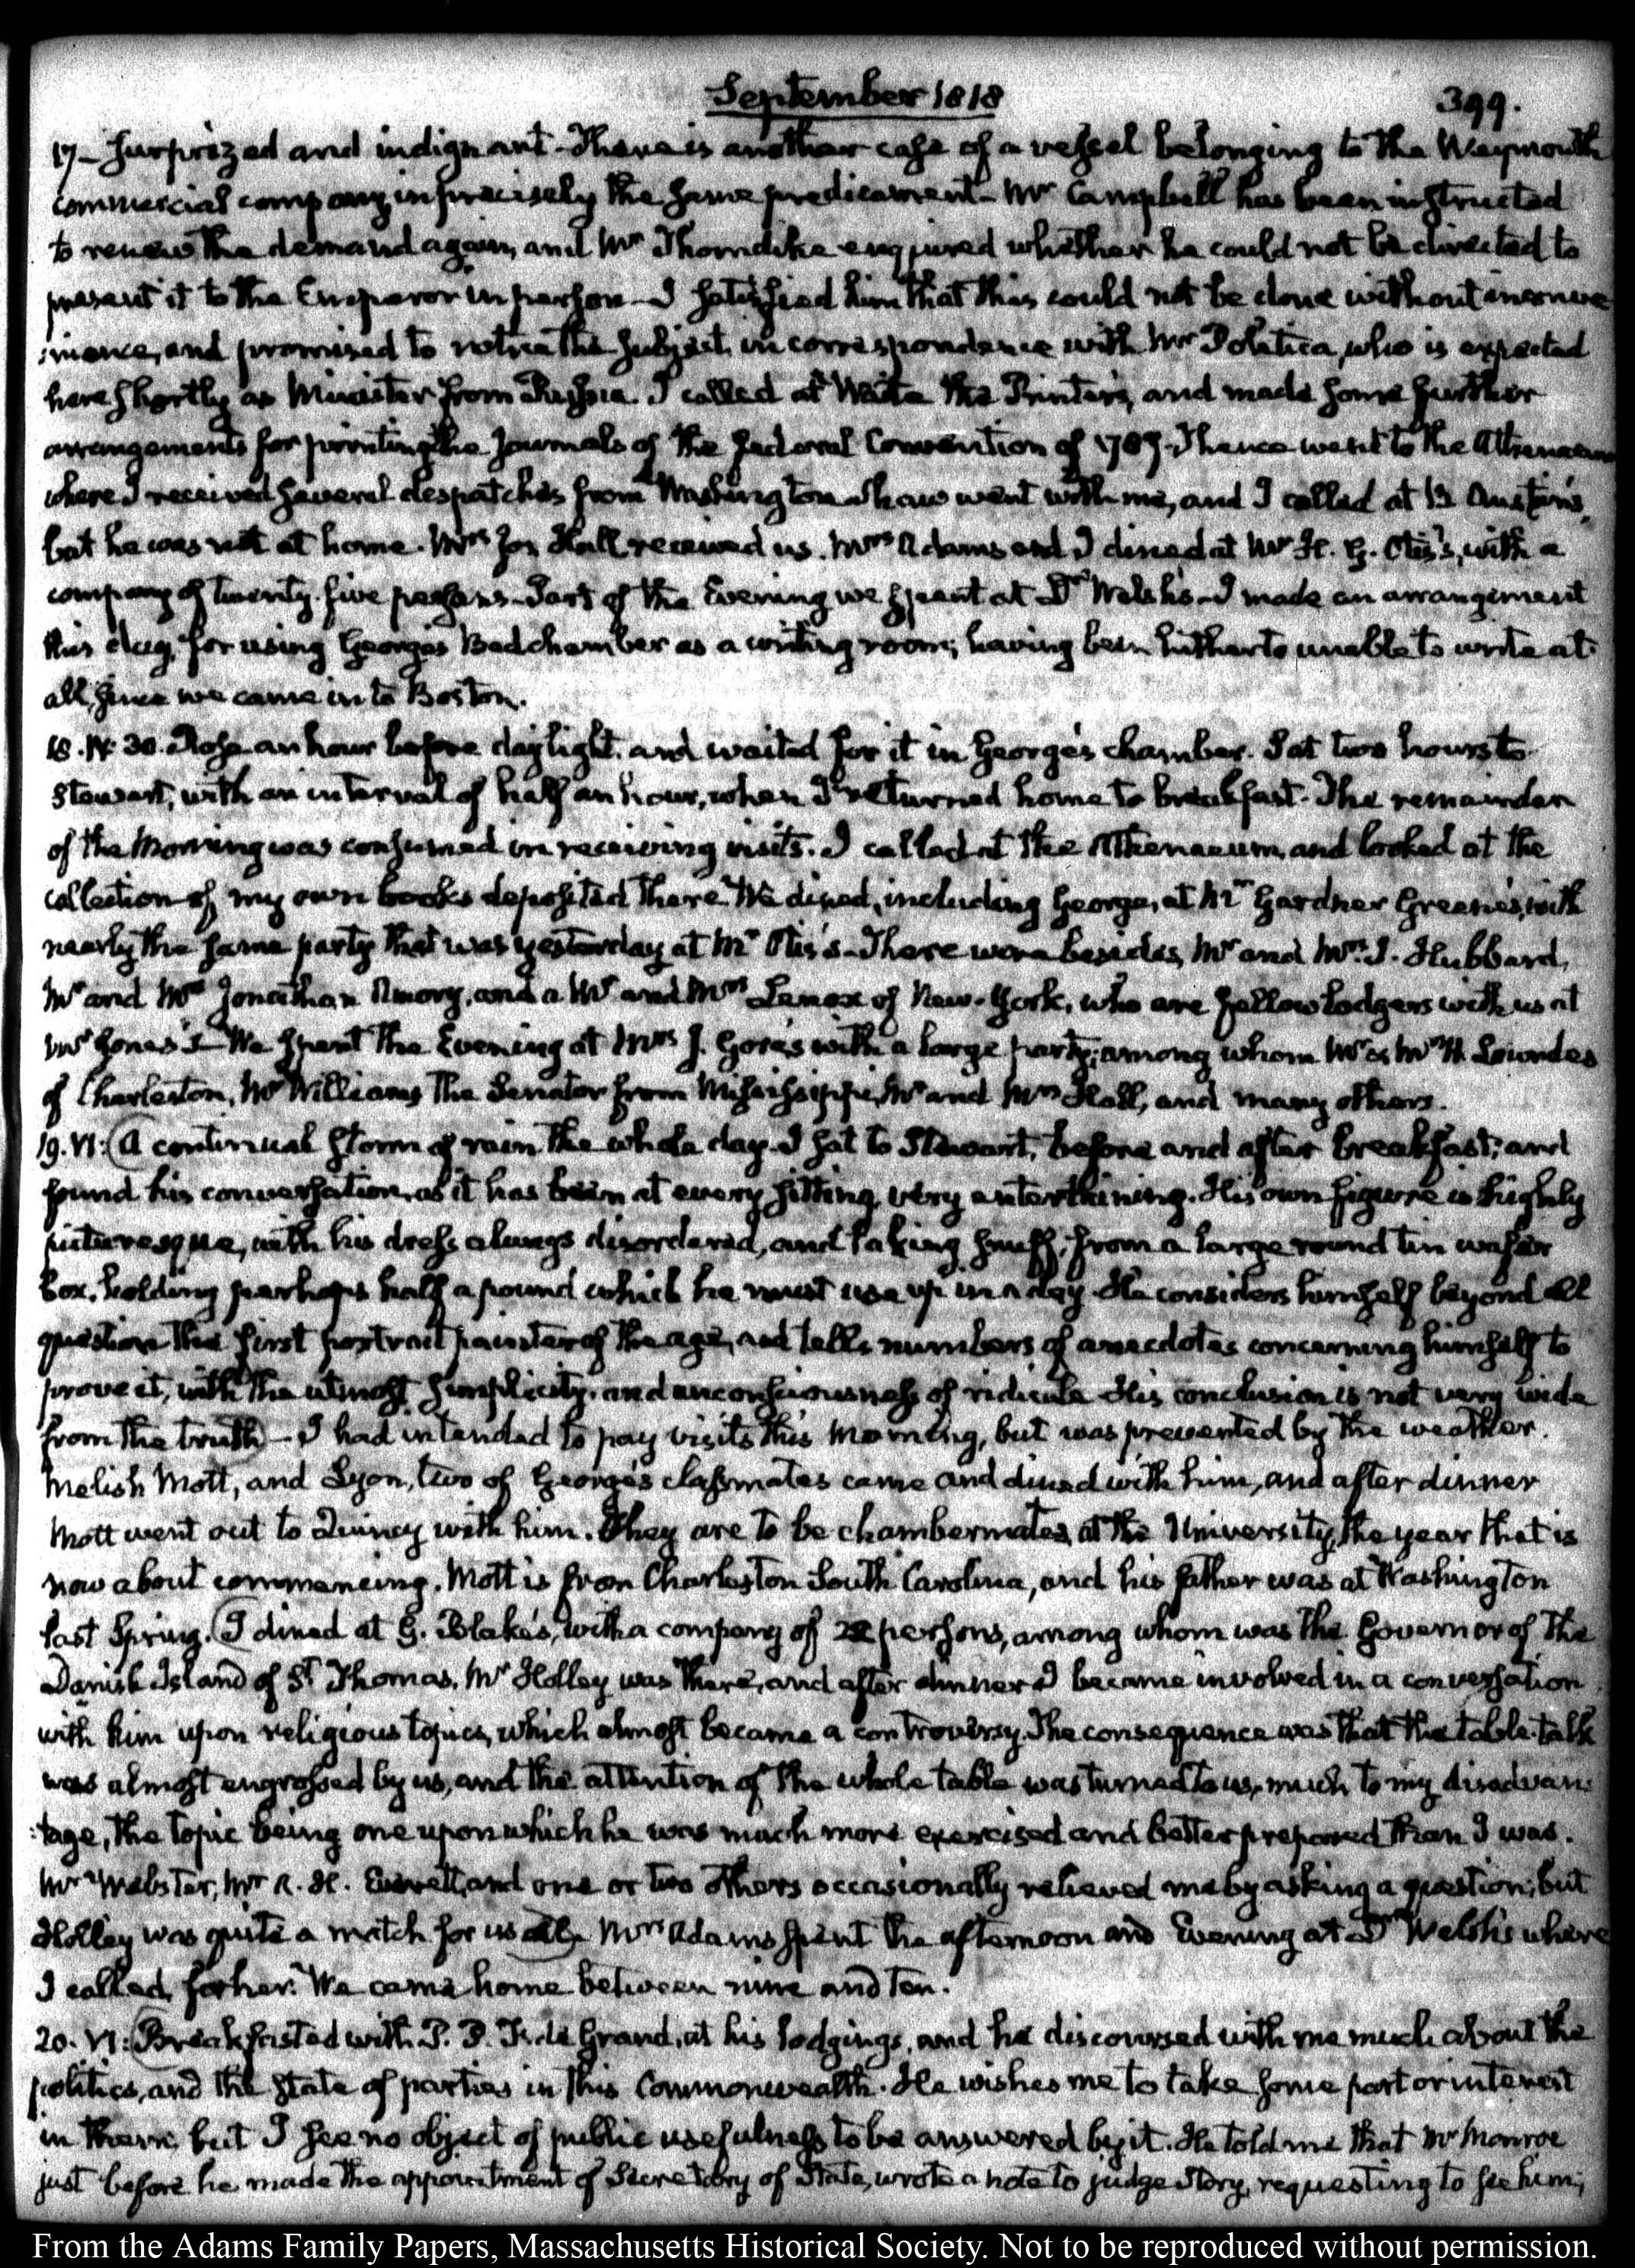 September 1818
399.
17— Surprized and indignant— There is another case of a vessel belonging to the Weymouth
commercial company in precisely the same predicament— Mr Campbell has been instructed
to renew the demand again, and Mr Thorndike enquired whether he could not be directed to
present it to the Emperor in person— I satisfied him that this could not be done without inconve
:nience, and promised to notice the subject in correspondence with Mr Poletica, who is expected
here shortly as Minister from Russia. I called at Waite the Printer's, and made some further
arrangements for printing the Journals of the federal Convention of 1787. Thence went to the Athenaeum
where I received several despatches from Washington— Shaw went with me, and I called at B. Austin's,
but he was not at home. Mrs Jos Hall received us. Mrs Adams and I dined at Mr H. G. Otis's, with a
company of twenty-five persons— Part of the Evening we spent at Dr Welsh's— I made an arrangement
this day, for using George's Bedchamber as a writing room; having been hitherto unable to write at
all, since we came in to Boston.
18. IV: 30. Rose an hour before daylight, and waited for it in George's chamber. Sat two hours to
Stewart, with an interval of half an hour, when I returned home to breakfast. The remainder
of the Morning was consumed in receiving visits. I called at the Athenaeum, and looked at the
collection of my own books deposited there. We dined, including George, at Mr Gardner Greene's, with
nearly the same party that was yesterday at Mr Otis's— There were besides, Mr and Mrs J. Hubbard,
Mr and Mrs Jonathan Amory, and a Mr and Mrs Lenox of New-York, who are fellow lodgers with us at
Mrs Jones's— We spent the Evening at Mrs J. Gore's with a large party; among whom Mr & Mrs H. Lowndes
of Charleston, Mr Williams the Senator from Missisippi, Mr and Mrs Hall, and many others.
19. VI: A continual storm of rain the whole day. I sat to Stewart, before and after breakfast; and
found his conversation, as it has been at every sitting, very entertaining. His own figure is highly
picturesque, with his dress always disordered, and taking snuff, from a large round tin wafer
box, holding perhaps half a pound which he must use up in a day. He considers himself beyond all
question the first portrait painter of the age, and tells numbers of anecdotes concerning himself to
prove it, with the utmost simplicity, and unconsciousness of ridicule. His conclusion is not very wide
from the truth— I had intended to pay visits this Morning, but was prevented by the weather.
Melish Mott, and Lyon, two of George's classmates came and dined with him, and after dinner
Mott went out to Quincy with him. They are to be chambermates, at the University, the year that is
now about commencing. Mott is from Charleston South Carolina, and his father was at Washington
last Spring. I dined at G. Blake's, with a company of 22 persons, among whom was the Governor of the
Danish Island of St Thomas. Mr Holley was there, and after dinner I became involved in a conversation
with him upon religious topics, which almost became a controversy. The consequence was that the table-talk
was almost engrossed by us, and the attention of the whole table was turned to us, much to my disadvan:
:tage, the topic being one upon which he was much more exercised and better prepared than I was.
Mr Webster, Mr A. H. Everett, and one or two others occasionally relieved me by asking a question; but
Holley was quite a match for us all. Mrs Adams spent the afternoon and Evening at Dr Welsh's where
I called for her. We came home between nine and ten.
20. VI: Breakfasted with P. P. F. de Grand, at his lodgings, and he discoursed with me much about the
politics, and the state of parties in this Commonwealth. He wishes me to take some part or interest
in them, but I see no object of public usefulness to be answered by it. He told me that Mr Monroe
just before he made the appointment of Secretary of State, wrote a note to judge Story, requesting to see him;
From the Adams Family Papers, Massachusetts Historical Society. Not to be reproduced without permission.